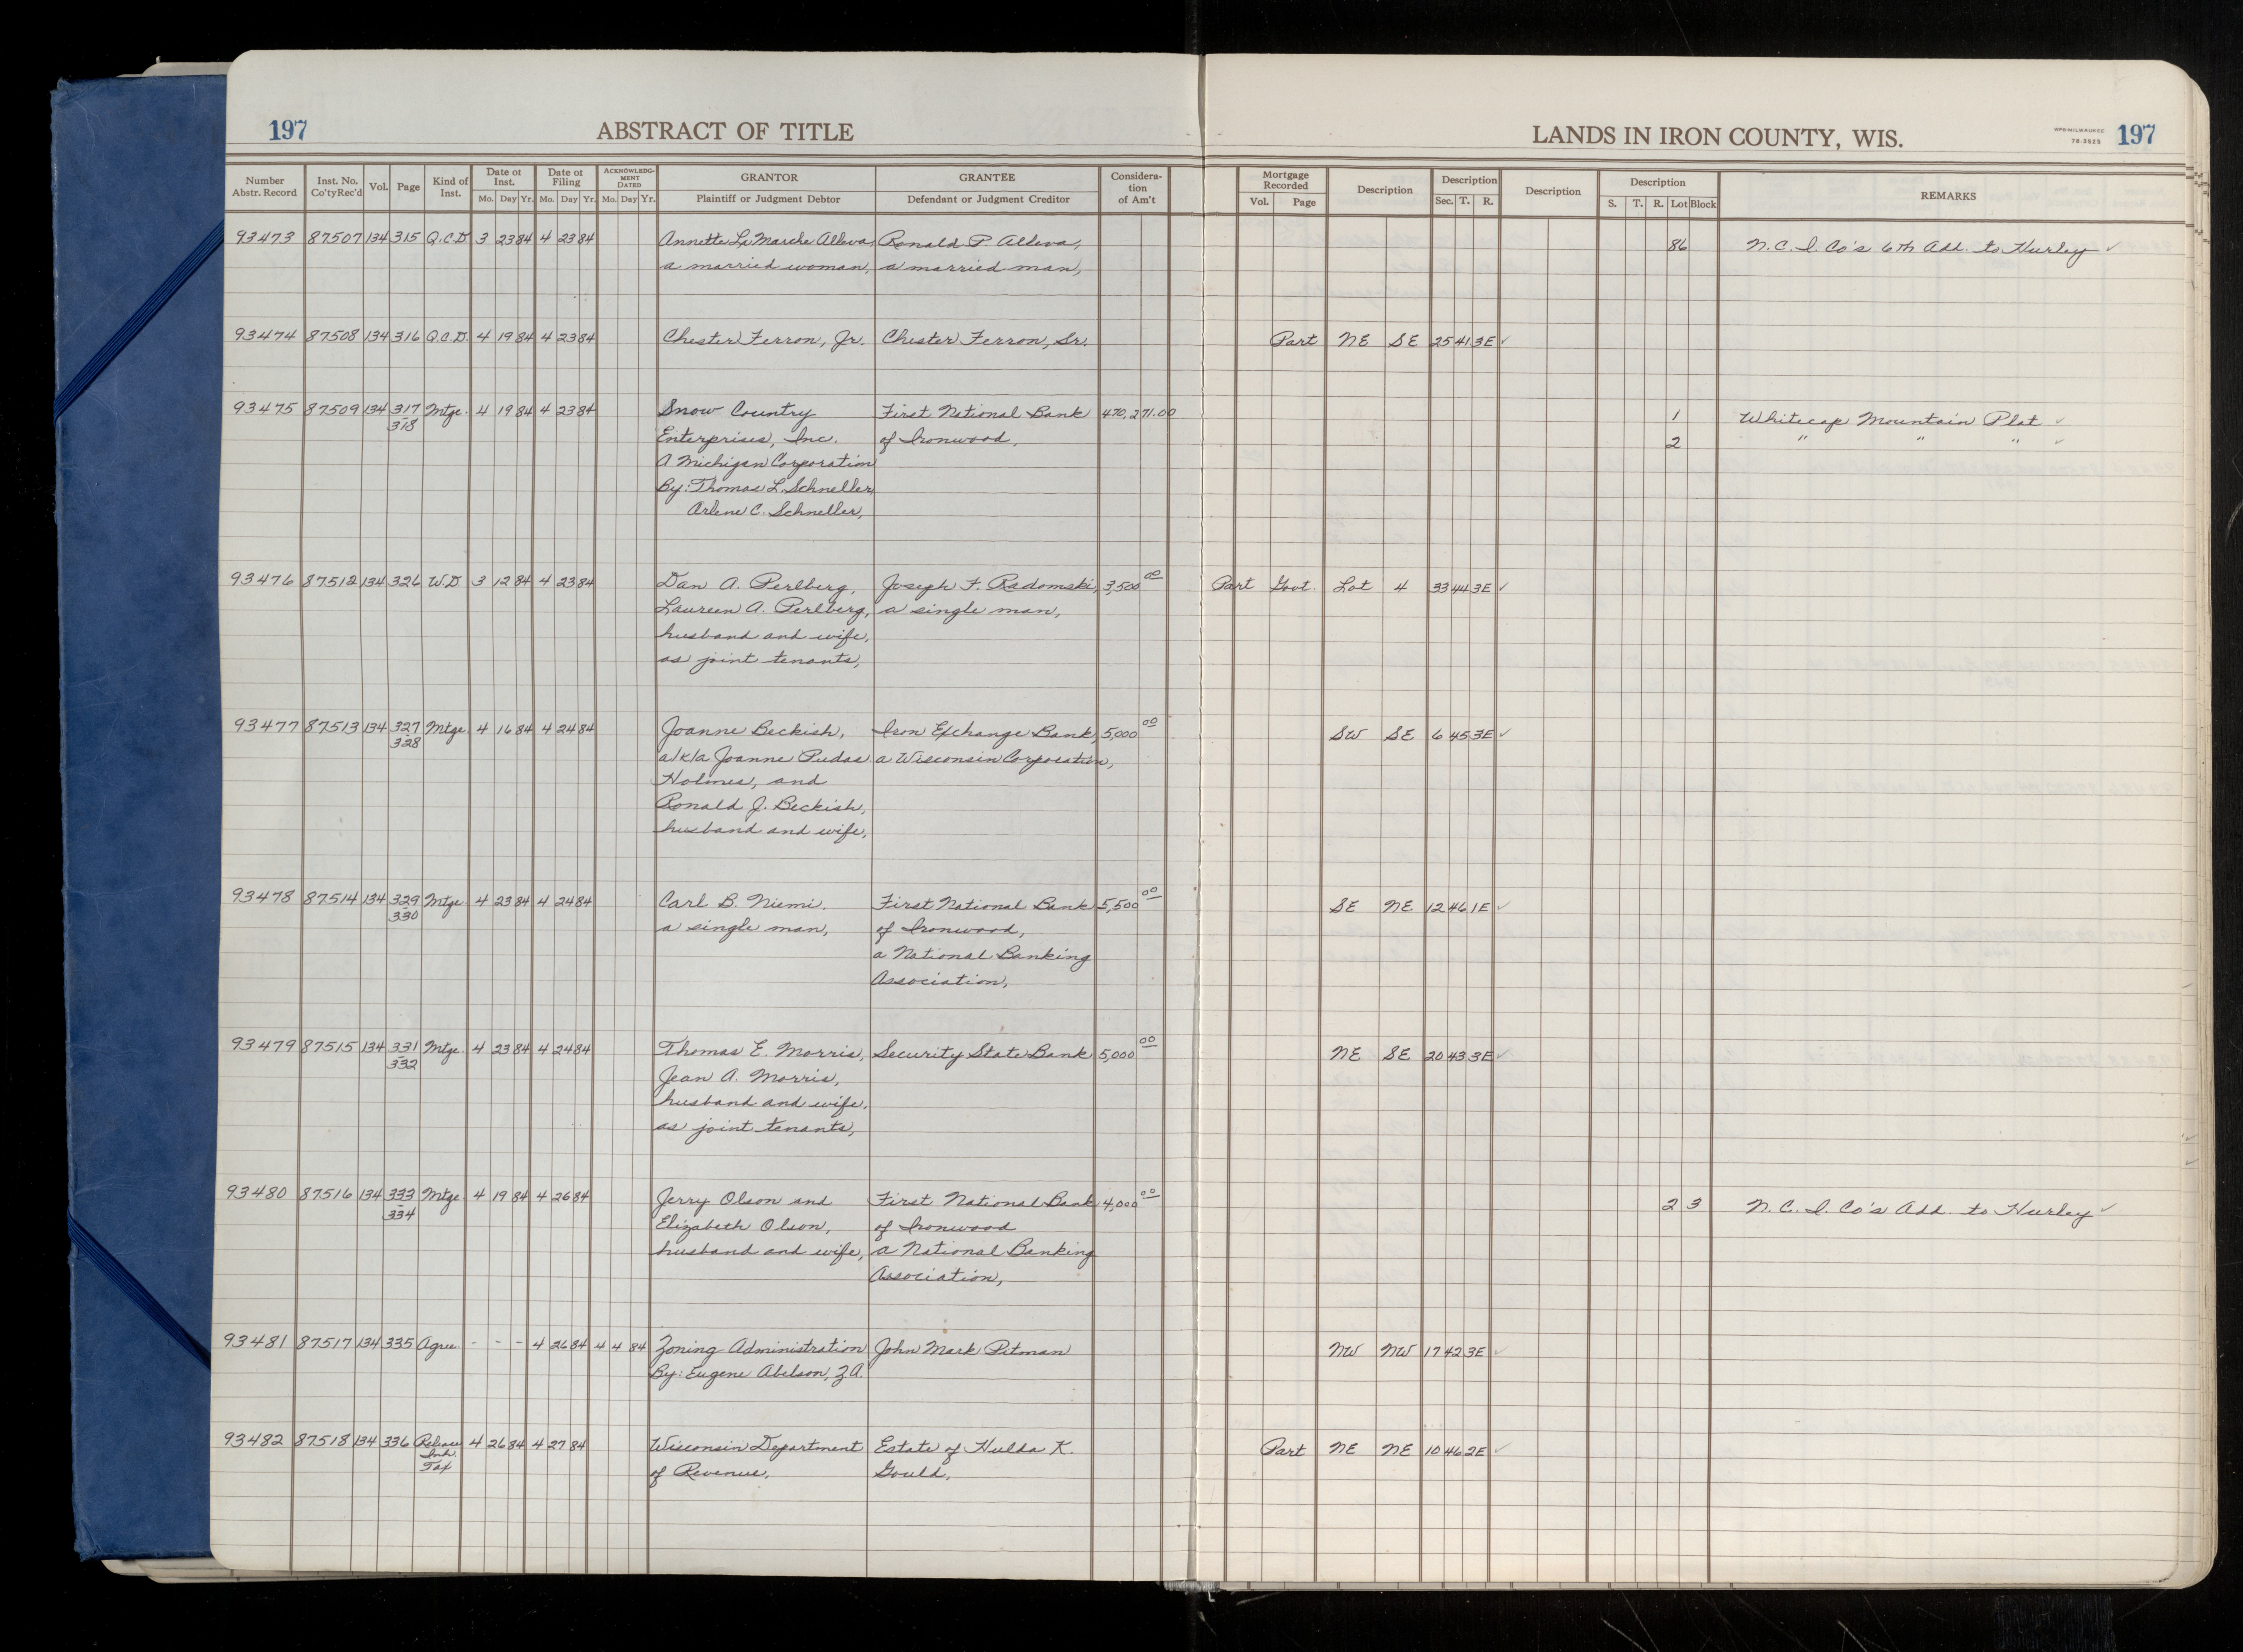 197 ABSTRACT OF TITLE LANDS IN IRON COUNTY, WIS. WPB-MILWAUKEE 78-3525 197
Number Abstr. Record Inst. No. Co'ty Rec'd Vol. Page Kind of Inst. Date of Inst. Mo. Day Yr. Date of Filing Mo. Day Yr. ACKNOWLEDGMENT DATED Mo. Day Yr. GRANTOR Plaintiff or Judgment Debtor GRANTEE Defendant or Judgment Creditor Consideration of Am't Mortgage Recorded Vol. Page Description Description Sec. T. R. Description Description S. T. R. Lot Block REMARKS
93473 87507 134 315 Q.C.D. 3 23 84 4 23 84 Annette La Marche Alleva, Ronald P. Alleva, 86 N.C.I. Co's 6th Add. to Hurley ✓
a married woman, a married man,
93474 87508 134 316 Q.C.D. 4 19 84 4 23 84 Chester Ferron, Jr. Chester Ferron, Sr. Part NE SE 25 41 3E ✓
93475 87509 134 317-318 Mtge. 4 19 84 4 23 84 Snow Country First National Bank 470,271.00 1 Whitecap Mountain Plat ✓
Enterprises, Inc. of Ironwood, 2 " " " ✓
A Michigan Corporation
By: Thomas L. Schneller,
Arlene C. Schneller,
93476 87512 134 326 W.D. 3 12 84 4 23 84 Dan A. Perlberg, Joseph F. Radomski, 3,500 00 Part Govt. Lot 4 33 44 3E ✓
Laureen A. Perlberg, a single man,
husband and wife,
as joint tenants,
93477 87513 134 327-328 Mtge. 4 16 84 4 24 84 Joanne Beckish, Iron Exchange Bank, 5,000 00 SW SE 6 45 3E ✓
a/k/a Joanne Pudas a Wisconsin Corporation,
Holmes, and
Ronald J. Beckish,
husband and wife,
93478 87514 134 329-330 Mtge. 4 23 84 4 24 84 Carl B. Niemi, First National Bank 5,500 00 SE NE 12 46 1E ✓
a single man, of Ironwood,
a National Banking
Association,
93479 87515 134 331-332 Mtge. 4 23 84 4 24 84 Thomas E. Morris, Security State Bank 5,000 00 NE SE 20 43 3E ✓
Jean A. Morris,
husband and wife,
as joint tenants,
93480 87516 134 333-334 Mtge. 4 19 84 4 26 84 Jerry Olson and First National Bank 4,000 00 2 3 N.C.I. Co's Add. to Hurley ✓
Elizabeth Olson, of Ironwood
husband and wife, a National Banking
Association,
93481 87517 134 335 Agree. - - - 4 26 84 4 4 84 Zoning Administration John Mark Pitman NW NW 17 42 3E ✓
By: Eugene Abelson, Z.A.
93482 87518 134 336 Release Inh. Tax 4 26 84 4 27 84 Wisconsin Department Estate of Hulda K. Part NE NE 10 46 2E ✓
of Revenue, Gould,